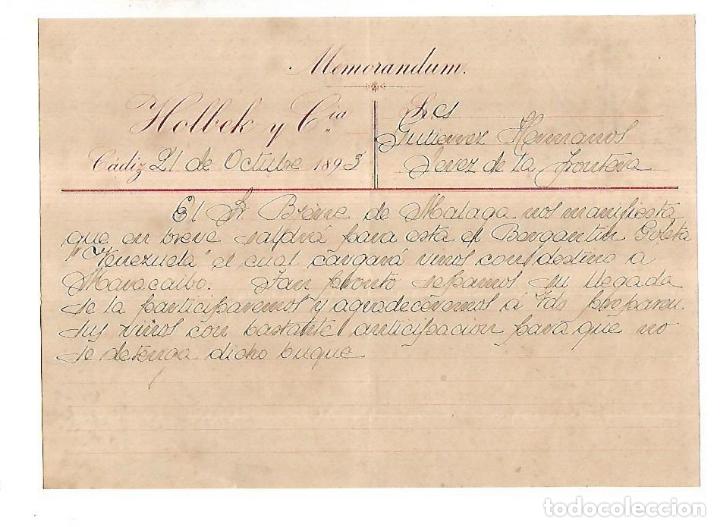 Memorandum.
Holbek y Cía
Sres
Gutierrez Hermanos
Cádiz 21 de Octubre 1893
Jerez de la Frontera
El Sr Brême de Malaga nos manifiesta
que en breve saldrá para esta el Bergantin Goleta
"Venezuela" el cual cargará vinos con destino a
Maracaibo. Tan pronto sepamos su llegada
se la participaremos y agradeceriamos á Vds preparen
sus vinos con bastante anticipacion para que no
se detenga dicho buque
todocoleccion